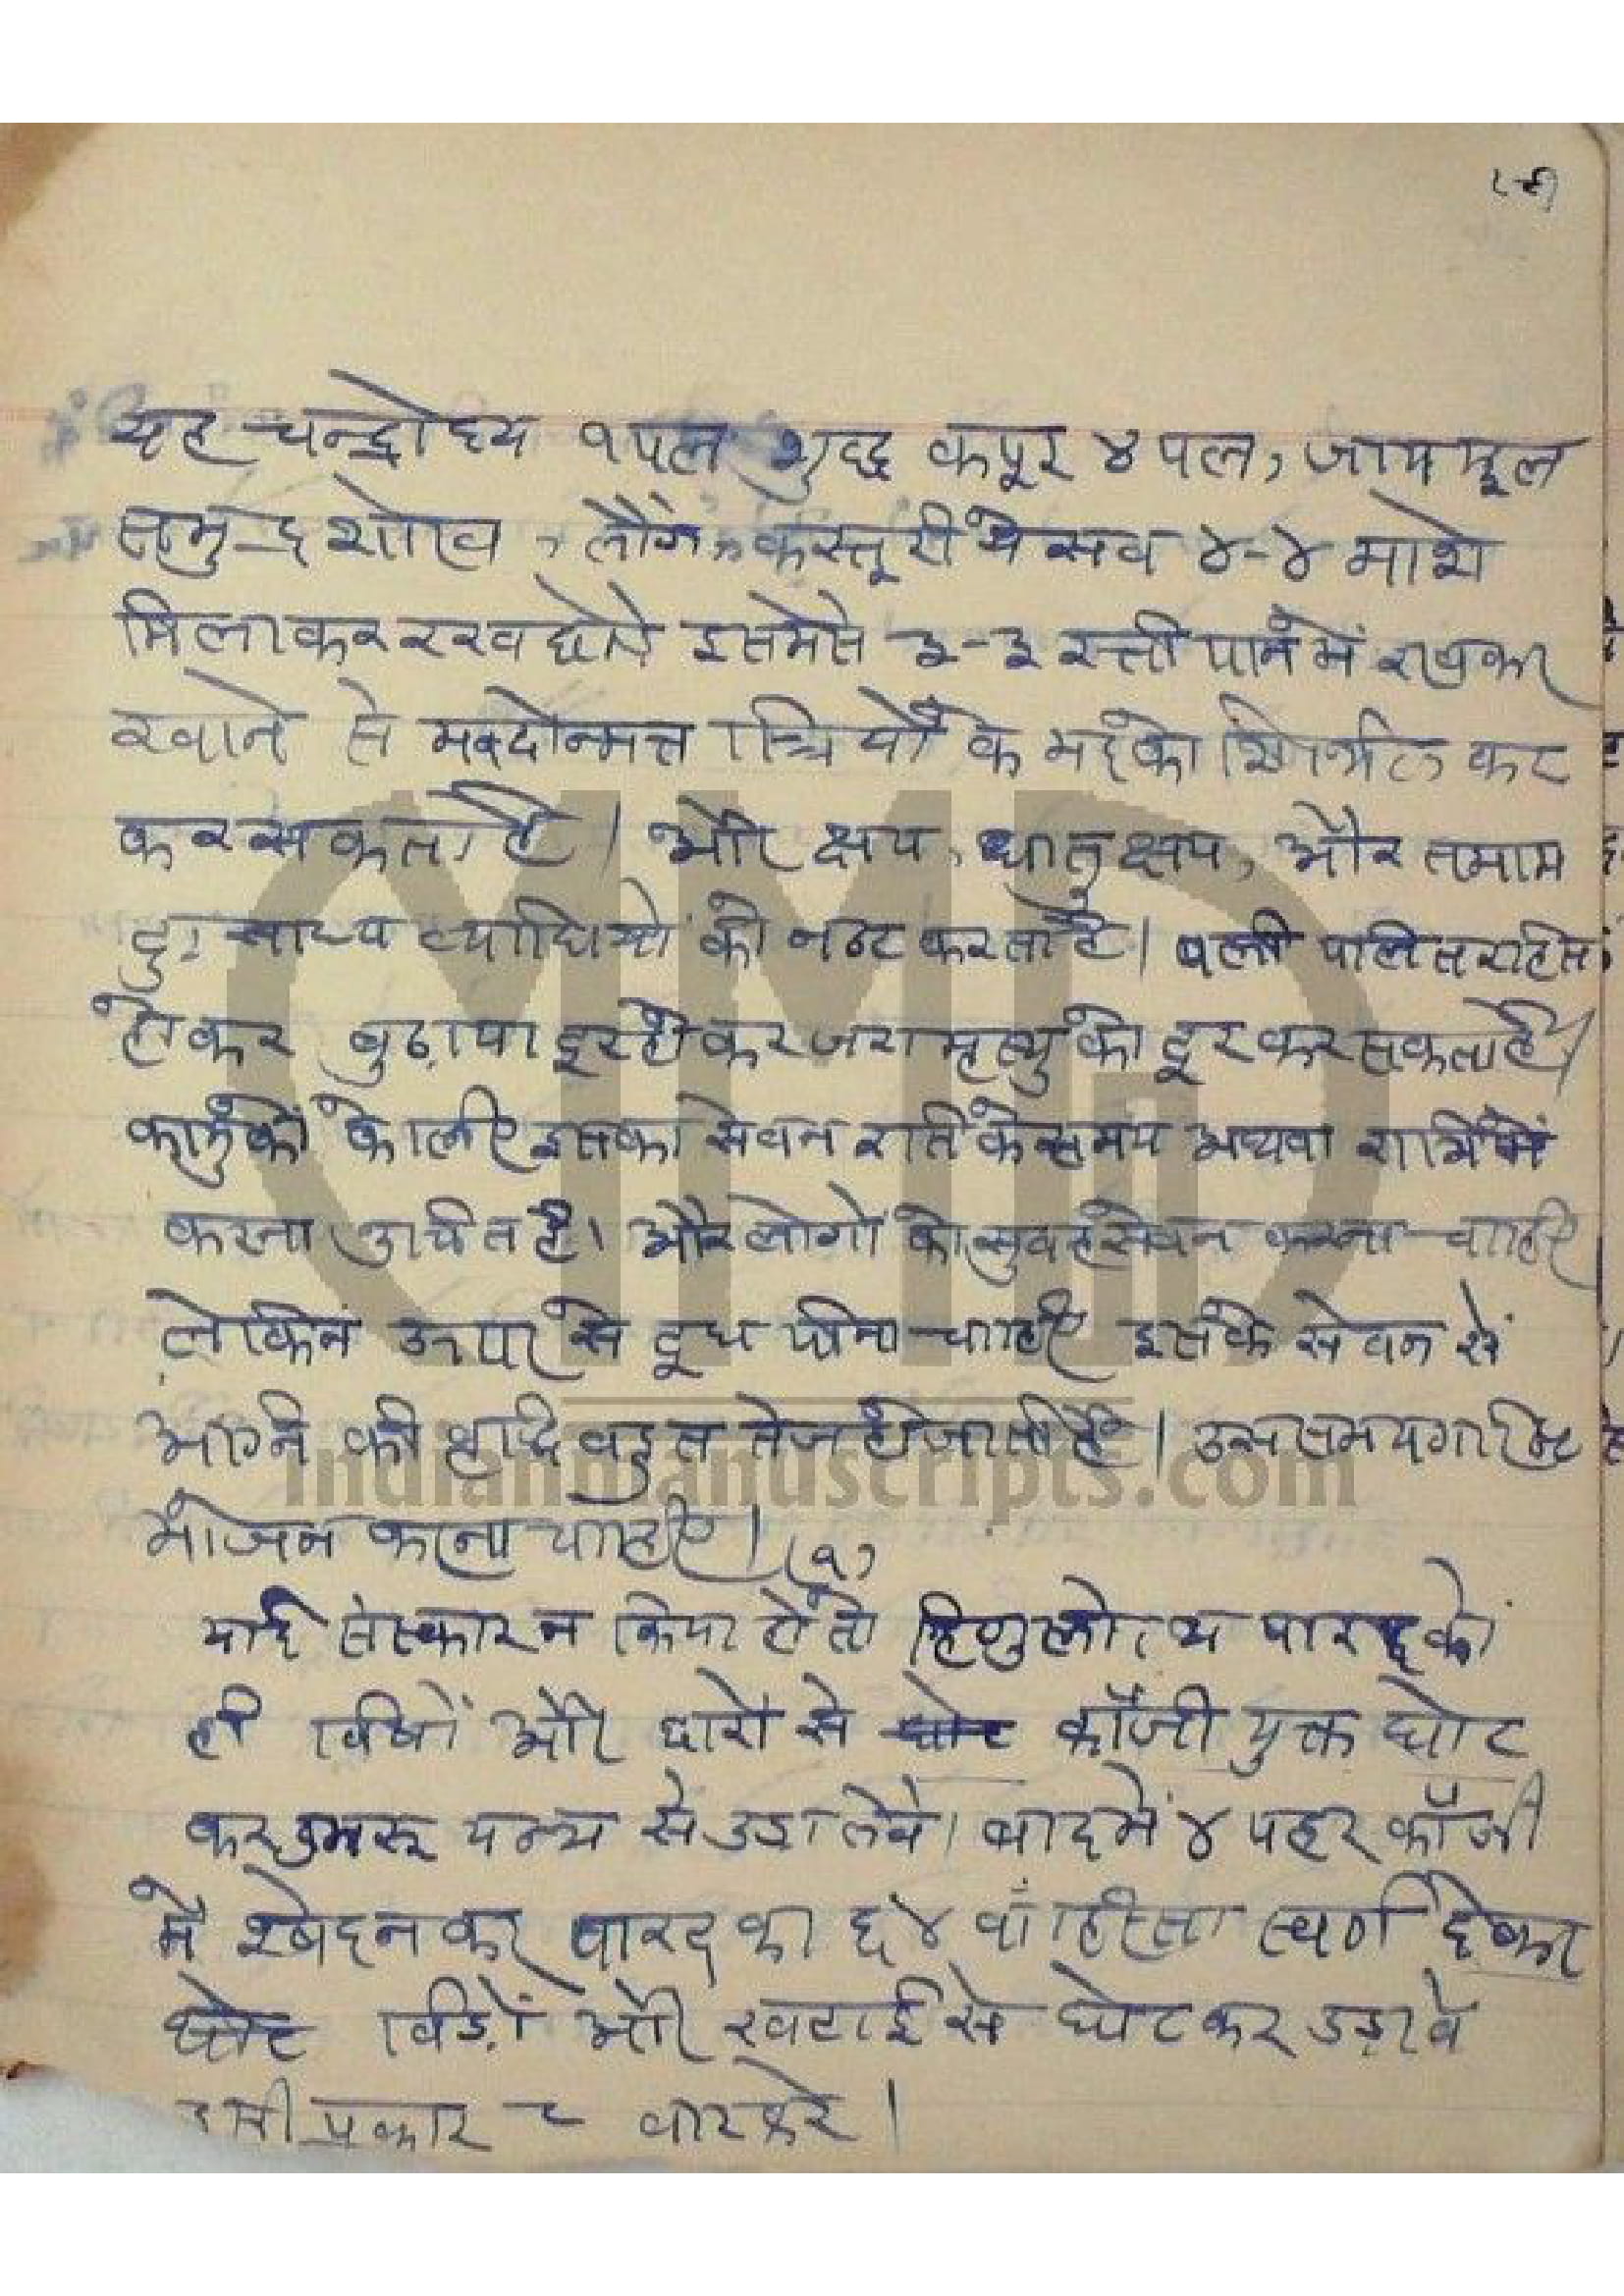 यह चन्द्रोद्य १ पल शुद्ध कपूर ४ पल, जायफूल
समुद्र शोख, लौंग, कस्तूरी ये सव ४-४ माशे
मिलाकर रख छोड़े इसमेसे ३-३ रत्ती पान में रखकर
खाने से मददोन्मत्त स्त्रियों के मद को शिथिल कर
कर सकता है। और क्षय, धातु क्षय, और तमाम
दुःसाध्य व्याधियों को नष्ट करता है। वली पलित रहित
होकर बुढ़ापा दूर हो कर जरा मृत्यु को दूर कर सकता है।
कामुकों के लिए इसका सेवन रति के समय अथवा रात्रि में
करना उचित है। और लोगों को सुवह सेवन करना चाहिए
लेकिन ऊपर से दूध पीना चाहिए इसके सेवन से
अग्नि की वृद्धि वहुत तेज हो जाती है। उस समय गरिष्ट
भोजन करना चाहिए। (२)
यदि संस्कार न किया हो तो हिंगुलोत्थ पारद को
ही विषों और क्षारों से काँजी युक्त घोट
कर डमरू यन्त्र से उड़ा लेवे। बाद में ४ पहर काँजी
में स्वेदन कर पारद का ६४ वां हिस्सा स्वर्ण देकर
घोट विडों और खटाई से घोट कर उड़ावे
इसी प्रकार वार करे।
MMM
indianmanuscripts.com